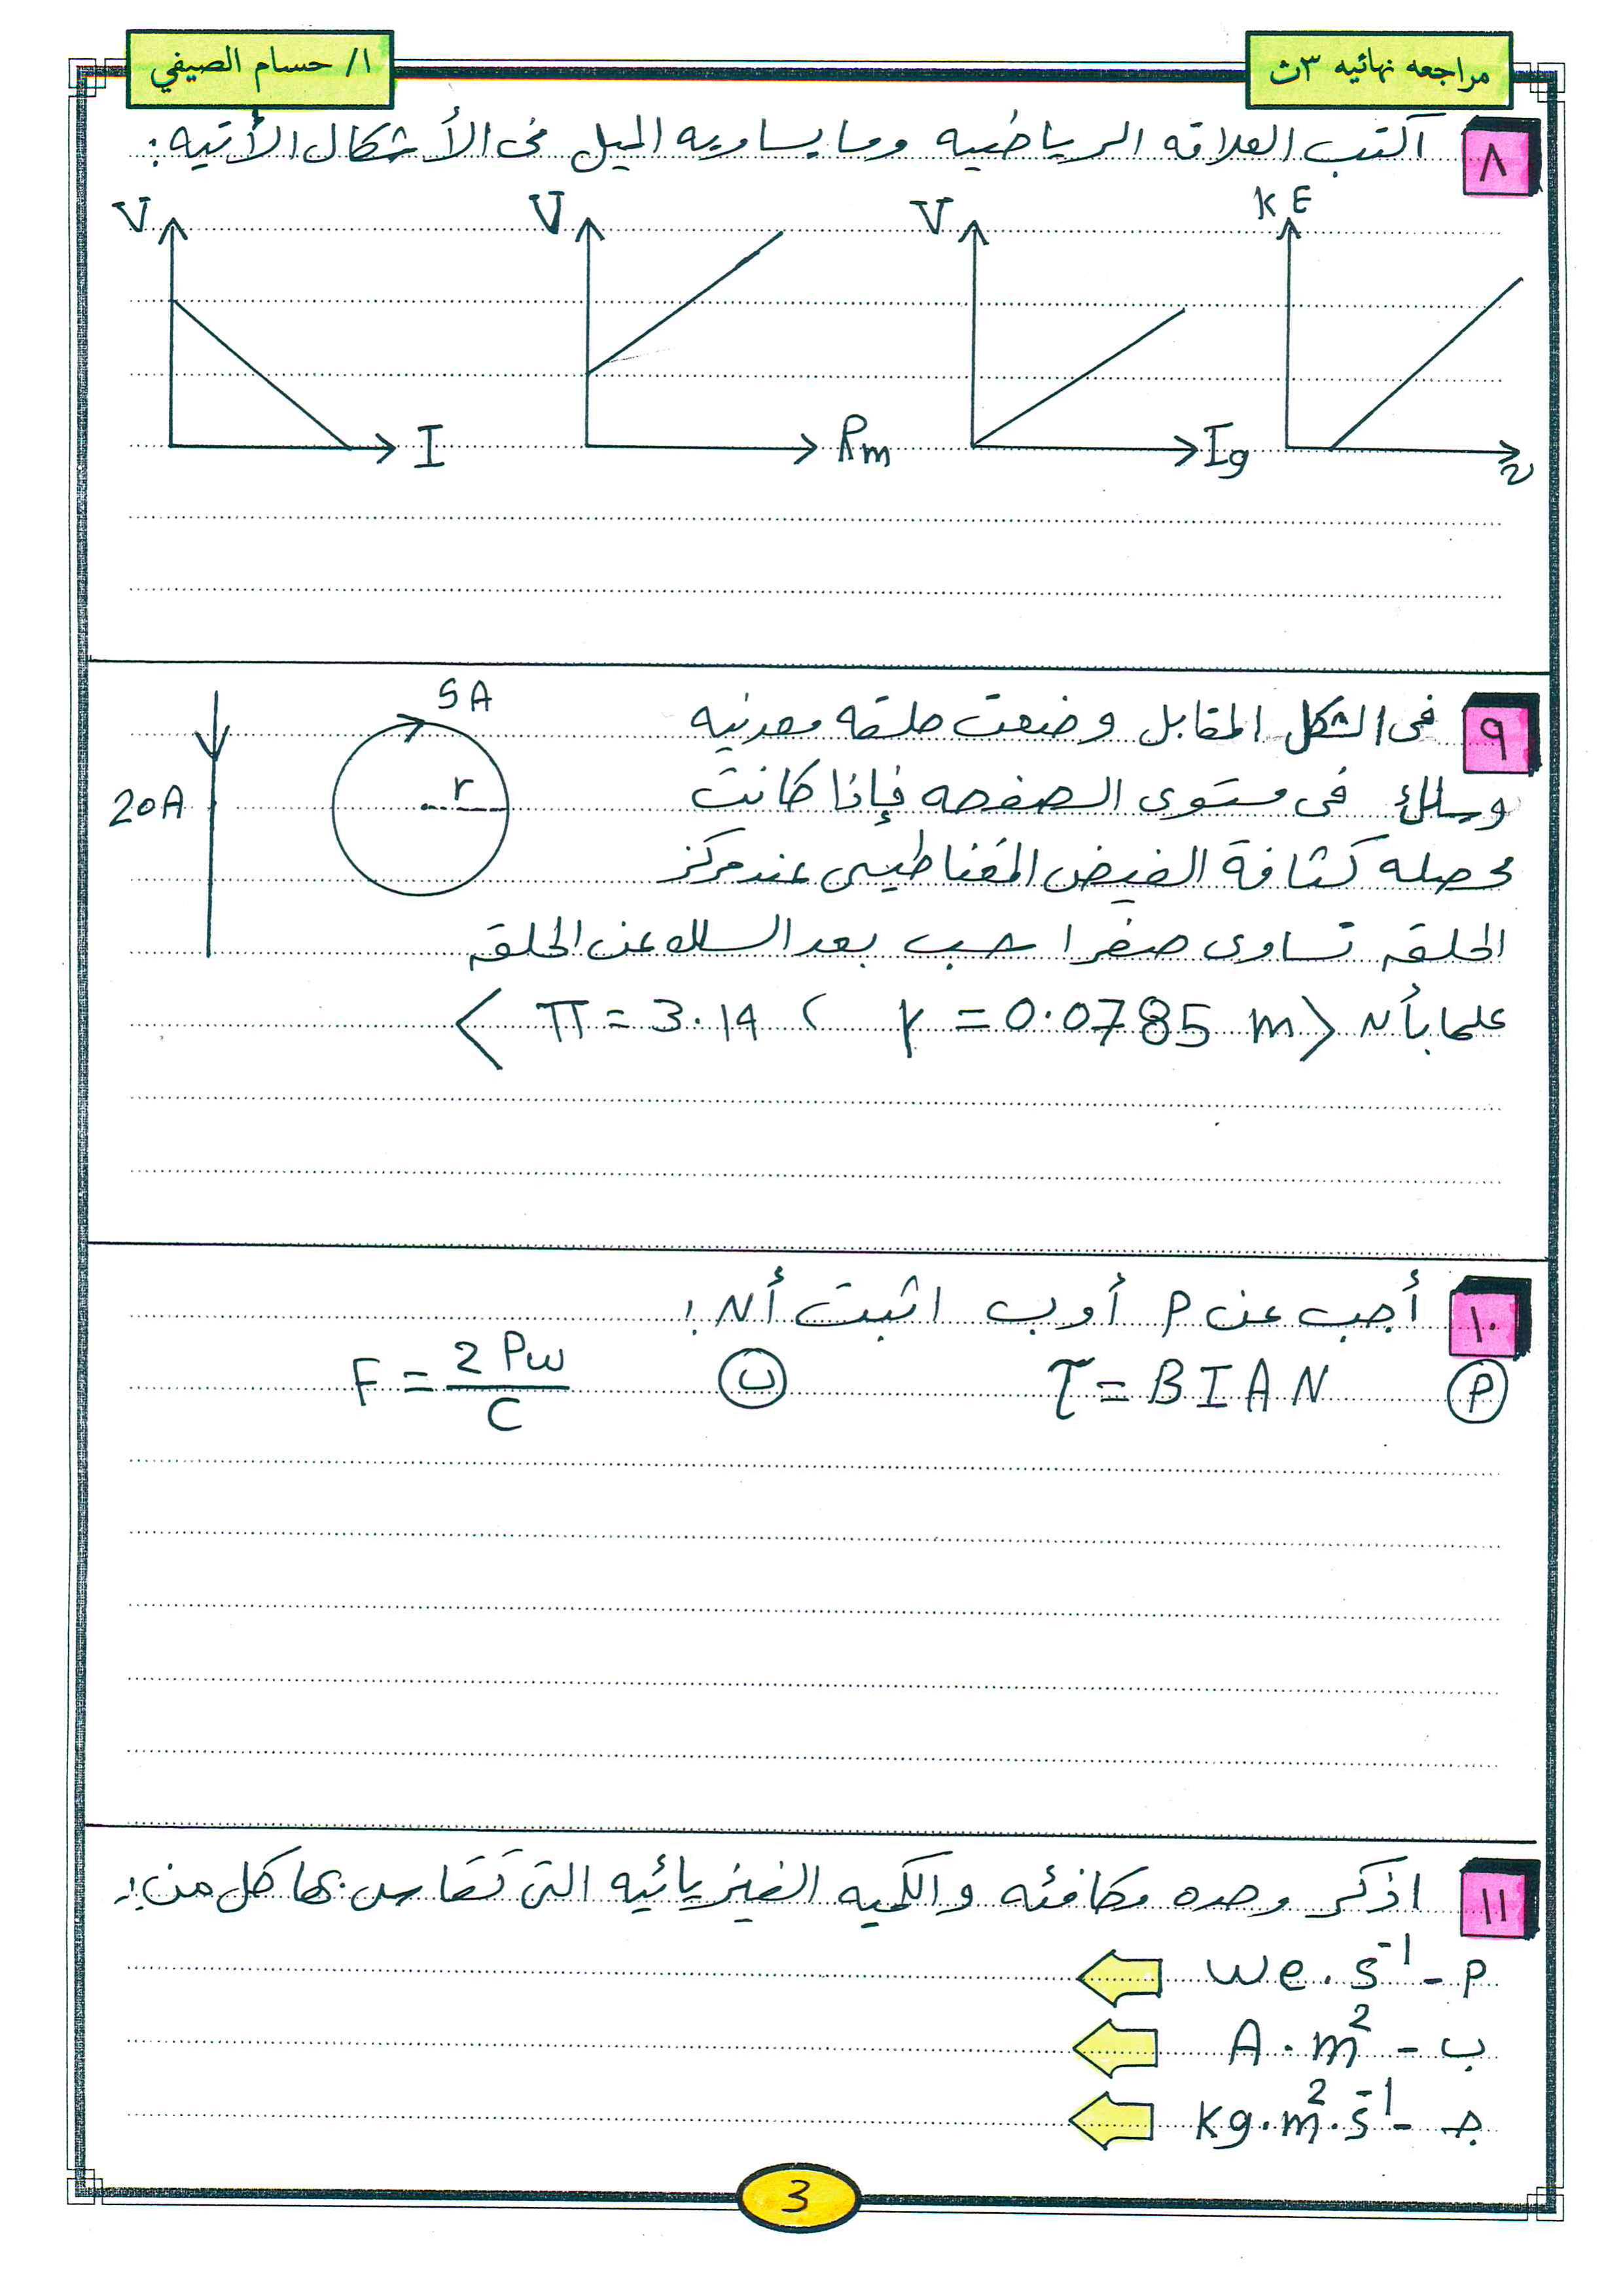 مراجعه نهائيه ٣ث
ا/ حسام الصيفي
٨ أكتب العلاقه الرياضيه وما يساويه الميل فى الأشكال الأتيه:
KE V V V
υ Ig Rm I
٩ فى الشكل المقابل وضعت حلقه معدنيه
5A
وسلك فى مستوى الصفحه فإذا كانت
r
20A
محصله كثافة الفيض المغناطيسى عند مركز
الحلقه تساوى صفرا احسب بعد السلك عن الحلقه
علما بأن < π = 3.14 ، r = 0.0785 m >
١٠ أجب عن P أو ب اثبت أن :
P τ = B I A N ب F = 2 Pw / C
١١ اذكر وحده مكافئه والكميه الفيزيائيه التى تقاس بها كل من :
P - we . s⁻¹
ب - A . m²
جـ - kg . m² . s⁻¹
3